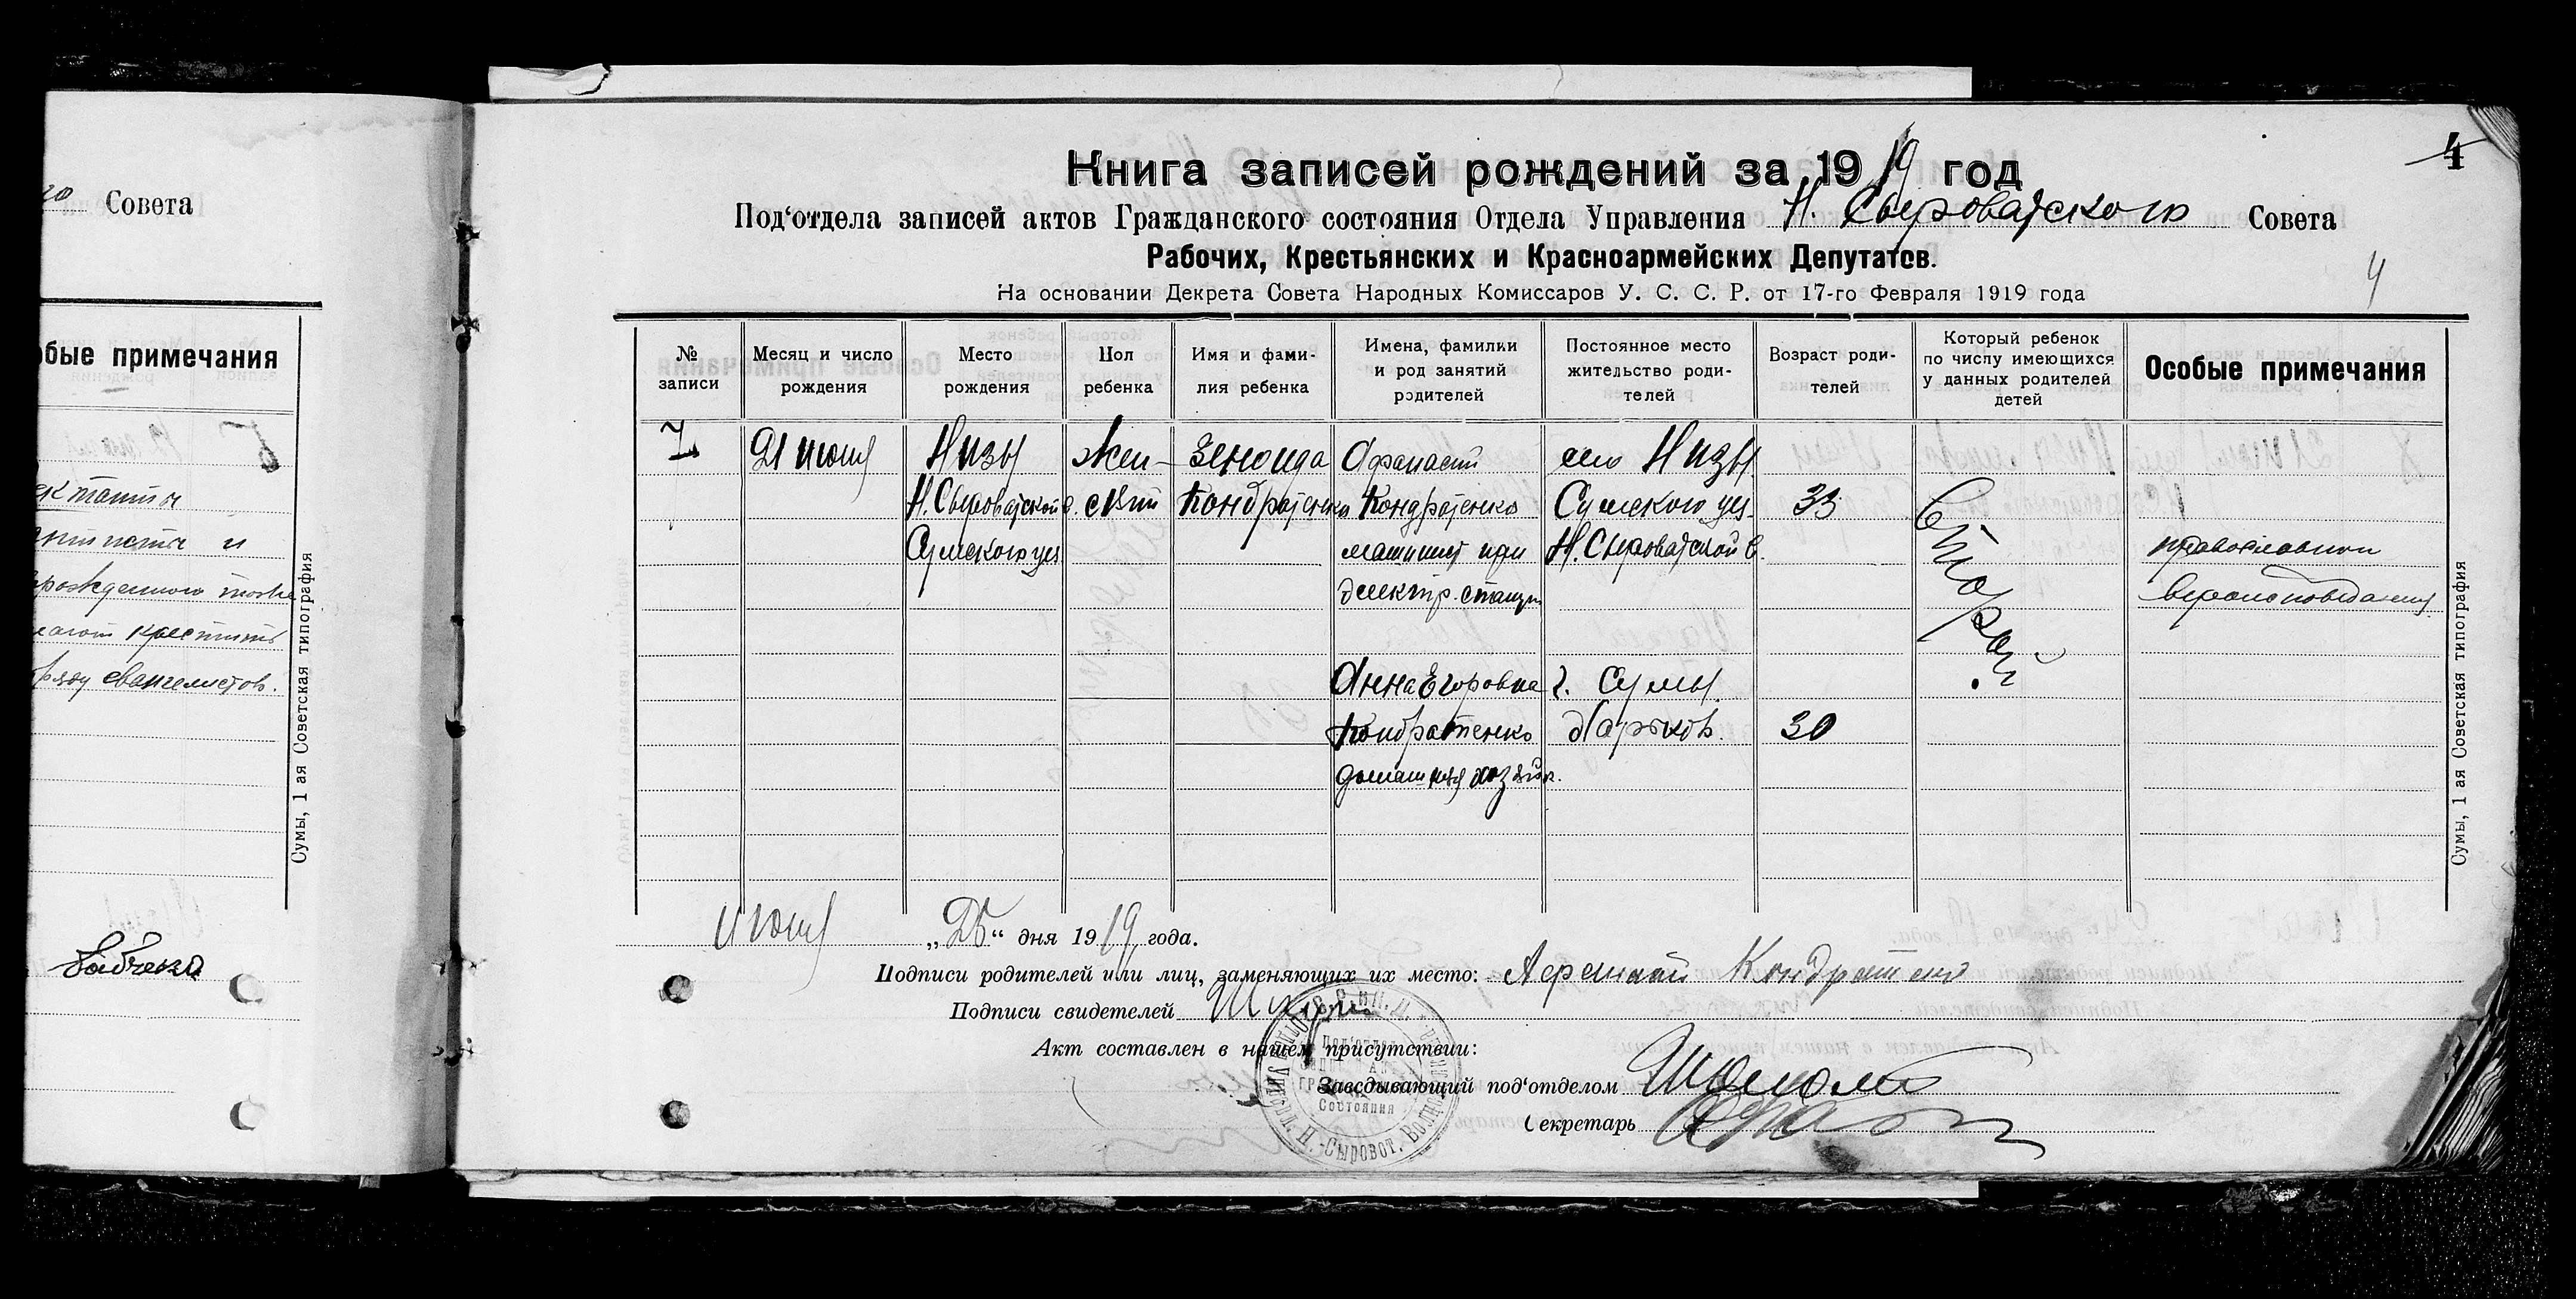 Совета
обые примечания
Б
и
крестить
евангелистов.
Сумы, 1 ая Советская типография
4
Книга записей рождений за 1919 год
Под'отдела записей актов Гражданского состояния Отдела Управления Н. Сыроватского Совета
Рабочих, Крестьянских и Красноармейских Депутатов.
На основании Декрета Совета Народных Комиссаров У. С. С. Р. от 17-го Февраля 1919 года
4
№ записи
Месяц и число рождения
Место рождения
Пол ребенка
Имя и фамилия ребенка
Имена, фамилии и род занятий родителей
Постоянное место жительство родителей
Возраст родителей
Который ребенок по числу имеющихся у данных родителей детей
Особые примечания
7
21 июня
Низы
Н. Сыроватской в.
Сумского уез
Жен-
ский
Зеноида
Кондратенко
Афанасий
Кондратенко
машинист при
электр. станции
село Низы
Сумского уез.
Н. Сыроватской в.
33
второй
православного
вероисповедания
Анна Егоровна
Кондратенко
домашняя хозяйк.
г. Сумы
Харьков.
30
Июня „25“ дня 1919 года.
Подписи родителей или лиц, заменяющих их место: Афанасий Кондратенко
Подписи свидетелей
Акт составлен в нашем присутствии:
Заведывающий под'отделом
Секретарь
Сумы, 1 ая Советская типография